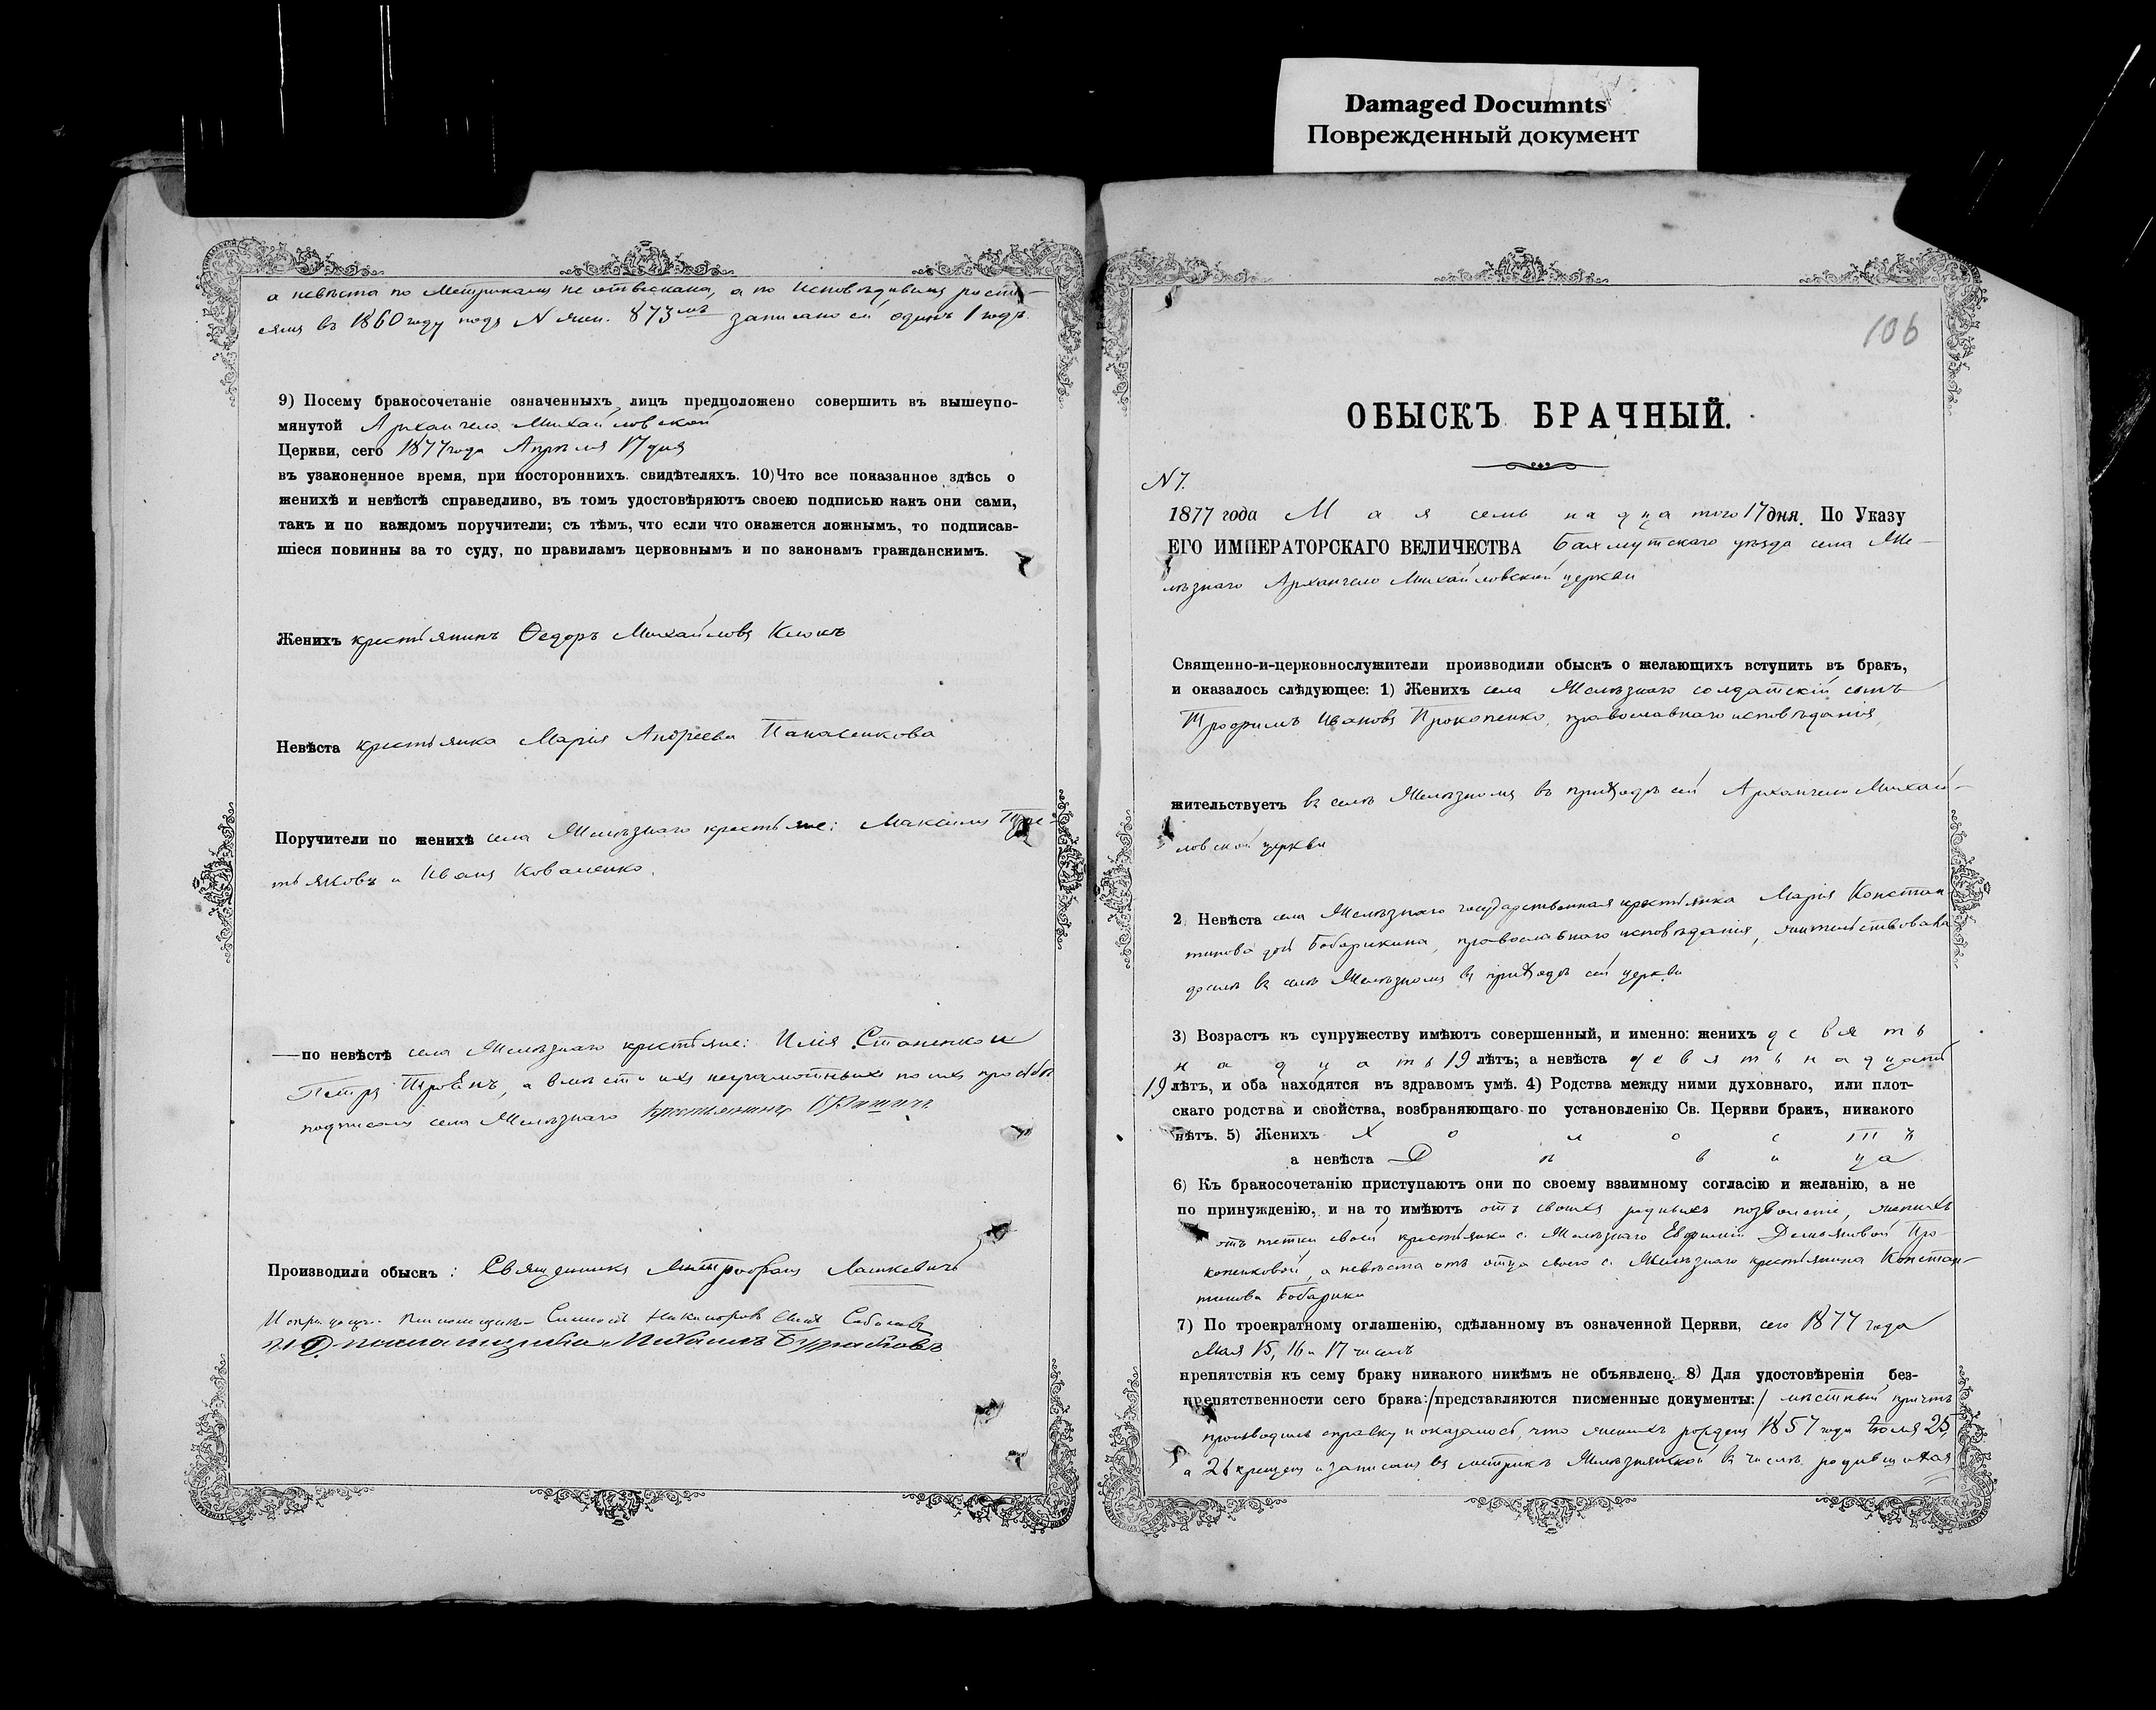 Damaged Documnts
Поврежденный документ
а невѣста по Метрикамъ не отыскана, а по Исповѣднымъ роспи-
сямъ въ 1860 году подъ N жен. 873мъ записано ей одинъ 1 годъ.
9) Посему бракосочетаніе означенныхъ лицъ предположено совершить въ вышеупо-
мянутой Архангело Михайловской
Церкви, сего 1877 года Апрѣля 17 дня
въ узаконенное время, при постороннихъ свидѣтеляхъ. 10) Что все показанное здѣсь о
женихѣ и невѣстѣ справедливо, въ томъ удостовѣряютъ своею подписью какъ они сами,
такъ и по каждомъ поручители; съ тѣмъ, что если что окажется ложнымъ, то подписав-
шіеся повинны за то суду, по правиламъ церковнымъ и по законамъ гражданскимъ.
Женихъ крестьянинъ Ѳедоръ Михайловъ
Невѣста крестьянка Марія Андреева Панасенкова
Поручители по женихѣ села Желѣзнаго крестьяне: Максимъ
и Иванъ Коваленко.
—по невѣстѣ села Желѣзнаго крестьяне: Илія Стапенко и
Петръ а вмѣсто ихъ неграмотныхъ по ихъ прозьбѣ
подписалъ села Желѣзнаго крестьянинъ
Производили обыскъ: Священникъ Митрофанъ Лашкевичъ
106
ОБЫСКЪ БРАЧНЫЙ.
N 7.
1877 года Мая семьнадцатого 17 дня. По Указу
ЕГО ИМПЕРАТОРСКАГО ВЕЛИЧЕСТВА Бахмутскаго уѣзда села Же-
лѣзнаго Архангело Михайловской церкви
Священно-и-церковнослужители производили обыскъ о желающихъ вступить въ бракъ,
и оказалось слѣдующее: 1) Женихъ села Желѣзнаго солдатскій сынъ
Трофимъ Ивановъ Прокопенко, православнаго исповѣданія,
жительствуетъ въ селѣ Желѣзномъ въ приходѣ сей Архангело Михай-
ловской церкви
2 Невѣста села Желѣзнаго государственная крестьянка Марія Констан
тинова дочь Бобарикина, православнаго исповѣданія, жительствовала
доселѣ въ селѣ Желѣзномъ въ приходѣ сей церкви
3) Возрастъ къ супружеству имѣютъ совершенный, и именно: женихъ девять
надцать 19 лѣтъ; а невѣста девятьнадцать
19 лѣтъ, и оба находятся въ здравомъ умѣ. 4) Родства между ними духовнаго, или плот-
скаго родства и свойства, возбраняющаго по установленію Св. Церкви бракъ, никакого
нѣтъ. 5) Женихъ Холостъ
а невѣста Дѣвица
6) Къ бракосочетанію приступаютъ они по своему взаимному согласію и желанію, а не
по принужденію, и на то имѣютъ отъ своихъ родныхъ позволеніе, женихъ
отъ тетки своей крестьянки с. Желѣзнаго Евфиміи Демьяновой Про-
копенковой, а невѣста отъ отца своего с. Желѣзнаго крестьянина Констан-
тинова Бобарики
7) По троекратному оглашенію, сдѣланному въ означенной Церкви, сего 1877 года
Мая 15, 16 и 17 числъ
препятствія къ сему браку никакого никѣмъ не объявлено. 8) Для удостовѣренія без-
препятственности сего брака:/представляются писменные документы:/ мѣстный причтъ
производилъ справку и оказалось, что женихъ рожденъ 1857 года Іюля 25,
а 26 крещенъ и записанъ въ метрикѣ Желѣзнянской въ числѣ родившихся